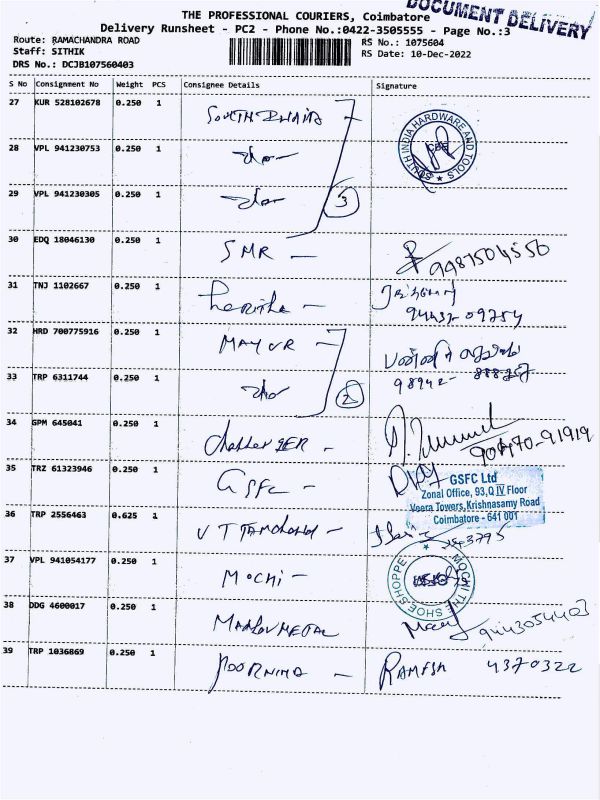 DOCUMENT DELIVERY
THE PROFESSIONAL COURIERS, Coimbatore
Delivery Runsheet - PC2 - Phone No.:0422-3505555 - Page No.:3
Route: RAMACHANDRA ROAD
Staff: SITHIK
DRS No.: DCJB107560403
RS No.: 1075604
RS Date: 10-Dec-2022
S No Consignment No Weight PCS Consignee Details Signature
27 KUR 528102678 0.250 1 SOUTH INDIA
SOUTH INDIA HARDWARE AND TOOLS
CBE
28 VPL 941230753 0.250 1
29 VPL 941230305 0.250 1 3
30 EDQ 18046130 0.250 1 SMR 9987504550
31 TNJ 1102667 0.250 1
94437-09754
32 HRD 700775916 0.250 1 MAYUR
33 TRP 6311744 0.250 1 2
34 GPM 645041 0.250 1
35 TRZ 61323946 0.250 1 GSFC
GSFC Ltd
Zonal Office, 93,Q IV Floor
Veera Towers,Krishnasamy Road
Coimbatore - 641 001
36 TRP 2556463 0.625 1
37 VPL 941054177 0.250 1 MOCHI
MOCHI THE SHOE SHOPPE
38 DDG 4600017 0.250 1 9443054403
39 TRP 1036869 0.250 1 POORNIMA RAMESH 4370322